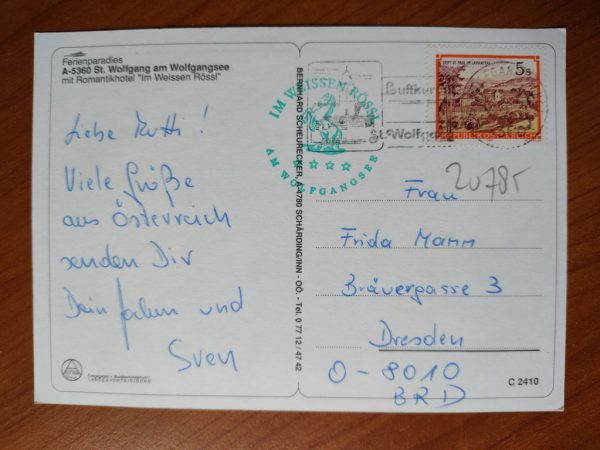 Ferienparadies
A-5360 St. Wolfgang am Wolfgangsee
mit Romantikhotel "Im Weissen Rössl"
Liebe Mutti!
Viele Grüße
aus Österreich
senden Dir
Dein und
Sven
BERNHARD SCHEURECKER, A-4780 SCHÄRDING/INN - OÖ. - Tel. 0 77 12 / 47 42
IM WEISSEN RÖSSL
AM WOLFGANGSEE
Luftkur
St. Wolfgang
STIFT ST. PAUL IM LAVANTTAL
5s
REPUBLIK ÖSTERREICH
20785
Frau
Frida Mamm
Bräuergasse 3
Dresden
O-8010
BRD
C 2410